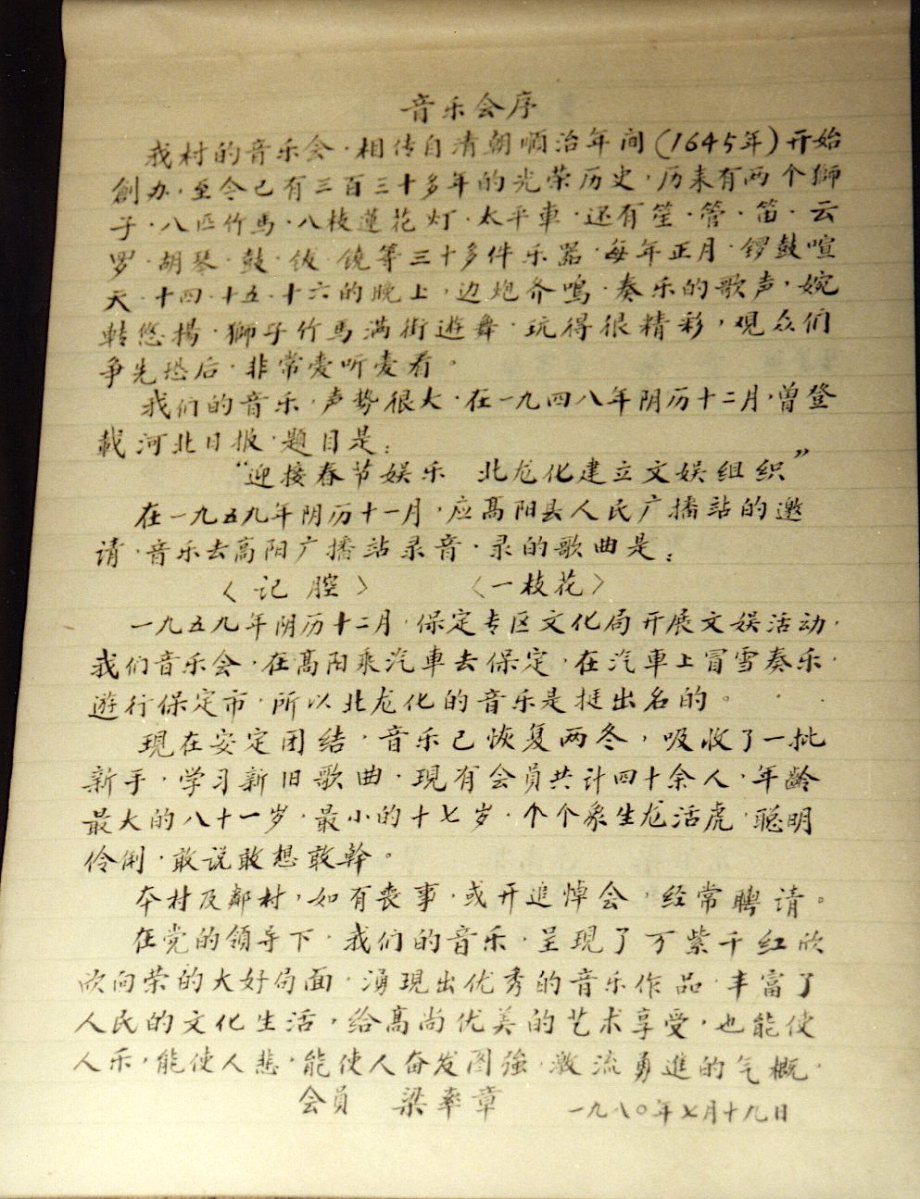 音乐会序
我村的音乐会·相传自清朝顺治年间(1645年)开始
創办·至今已有三百三十多年的光荣历史·历来有两个獅
子·八匹竹馬·八枝莲花灯·太平車·还有笙·管·笛·云
罗·胡琴·鼓·钹·铙等三十多件乐器·每年正月·锣鼓喧
天·十四·十五·十六的晚上，边炮齐鳴·奏乐的歌声，婉
転悠揚·獅子竹馬满街遊舞·玩得很精彩，观众们
争先恐后·非常爱听爱看。
我们的音乐·声势很大·在一九四八年阴历十二月，曾登
載河北日报·题目是：
“迎接春节娱乐 北龙化建立文娱组织”
在一九五九年阴历十一月·应高阳县人民广播站的邀
请·音乐去高阳广播站录音·录的歌曲是：
〈记腔〉 〈一枝花〉
一九五九年阴历十二月·保定专区文化局开展文娱活动·
我们音乐会·在高阳乘汽車去保定·在汽車上冒雪奏乐·
遊行保定市·所以北龙化的音乐是挺出名的。
現在安定团结·音乐已恢复两冬，吸收了一批
新手，学习新旧歌曲·現有会员共计四十余人·年龄
最大的八十一岁·最小的十七岁·个个象生龙活虎·聪明
伶俐·敢说敢想敢幹。
本村及邻村，如有丧事·或开追悼会，经常聘请。
在党的领导下·我们的音乐·呈現了万紫千红欣
欣向荣的大好局面·湧現出优秀的音乐作品·丰富了
人民的文化生活，给高尚优美的艺术享受，也能使
人乐，能使人悲·能使人奋发图強·激流勇進的气概·
会员 梁率章 一九八〇年七月十九日